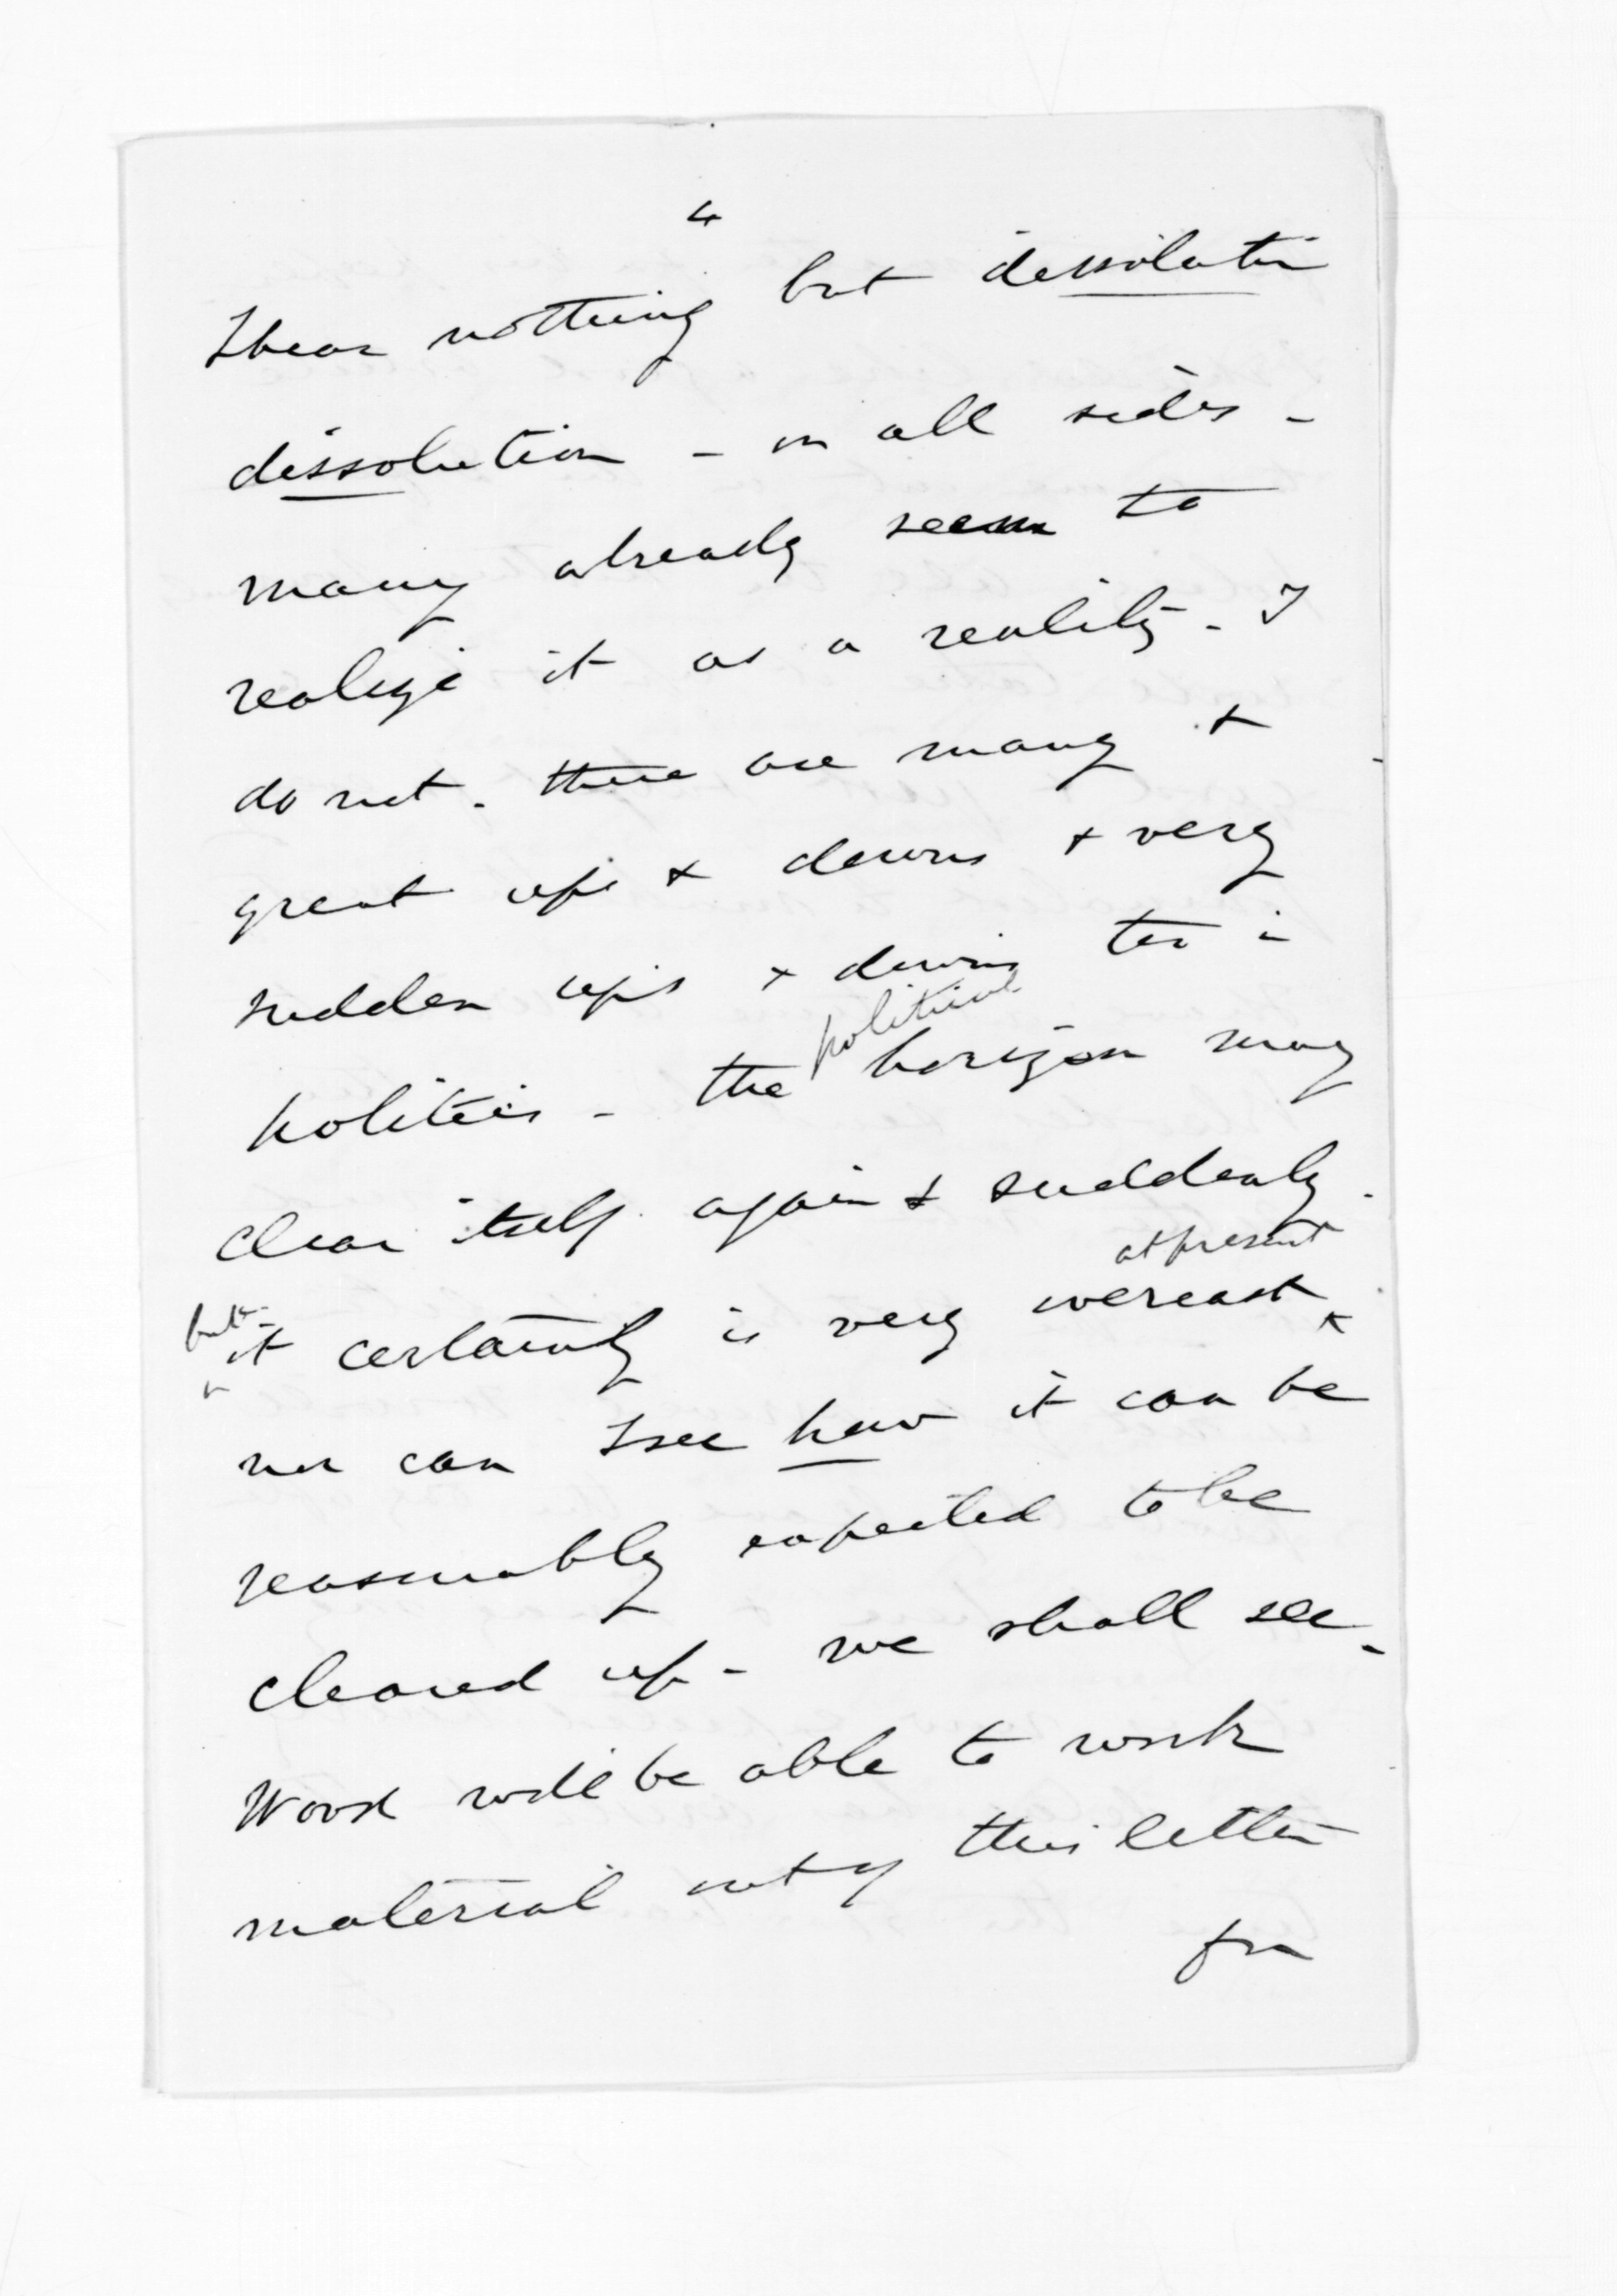 4
I hear nothing but dissolution
dissolution - on all sides -
many already seem to
realize it as a reality - I
do not. there are many &
great ups & downs & very
sudden ups & downs too in
politics - the political horizon may
clear itself again & suddenly.
but it certainly is very overcast at present
nor can I see how it can be
reasonably expected to be
cleared up - we shall see -
Wood will be able to work
material out of this letter
for